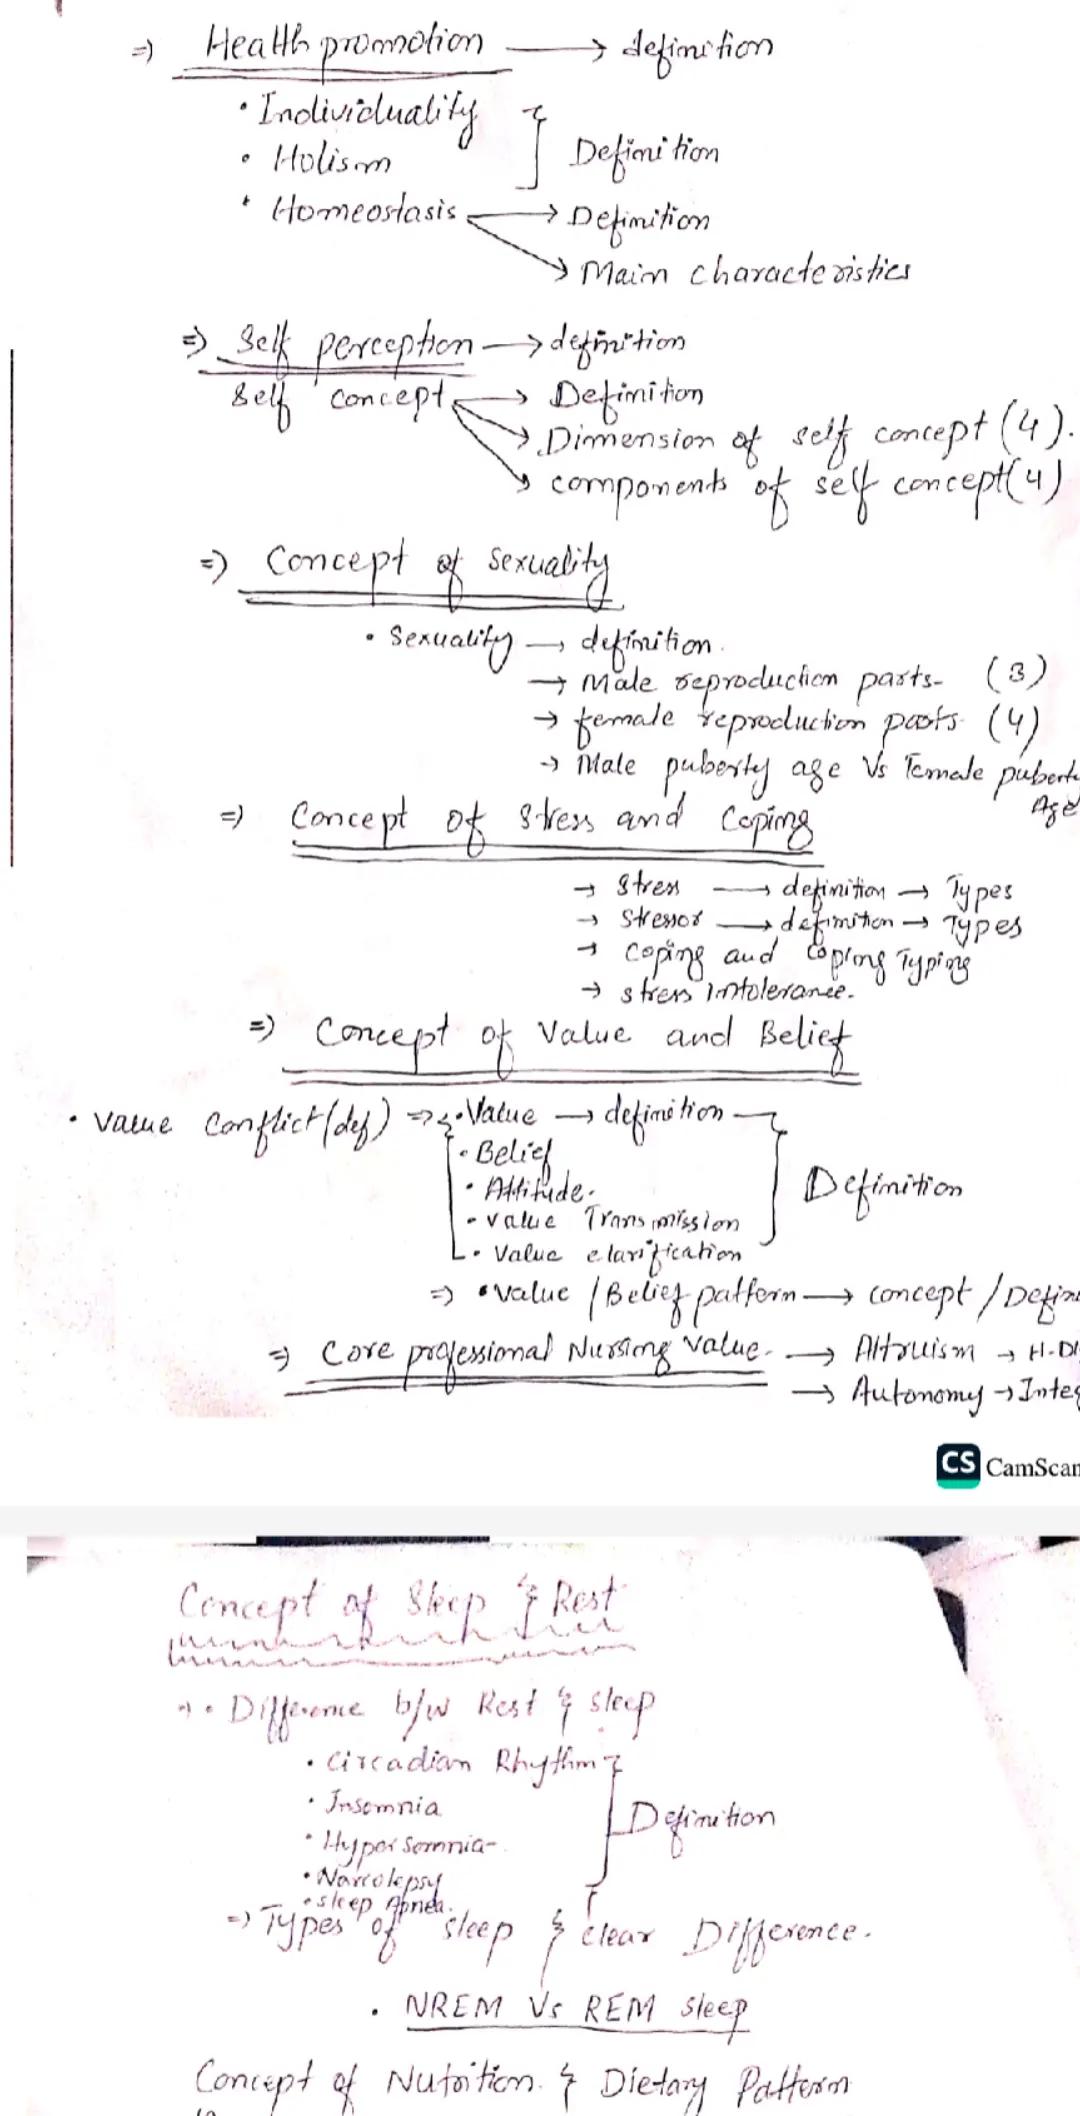 => Health promotion → definition
• Individuality
• Holism } Definition
• Homeostasis → Definition
→ Main characteristics
=> Self perception → definition
Self concept → Definition
→ Dimension of self concept (4).
→ components of self concept (4)
=> Concept of Sexuality
• Sexuality → definition.
→ Male reproduction parts- (3)
→ female reproduction parts (4)
→ Male puberty age Vs Female pubert
Age
=> Concept of Stress and Coping
→ Stress → definition → Types
→ Stressor → definition → Types
→ Coping and Coping Typing
→ stress intolerance.
=> Concept of Value and Belief
• Value Conflict (def) => • Value → definition
• Belief
• Attitude. Definition
• value Transmission
• Value clarification
=> • Value / Belief pattern → concept / Defin
=> Core professional Nursing Value. → Altruism → H.D
→ Autonomy → Integ
CS CamScan
Concept of Sleep & Rest
=> • Difference b/w Rest & sleep
• Circadian Rhythm
• Insomnia
Definition
• Hypersomnia-
• Narcolepsy
• sleep Apnea.
=> Types of sleep & clear Difference.
• NREM Vs REM sleep
Concept of Nutrition & Dietary Pattern